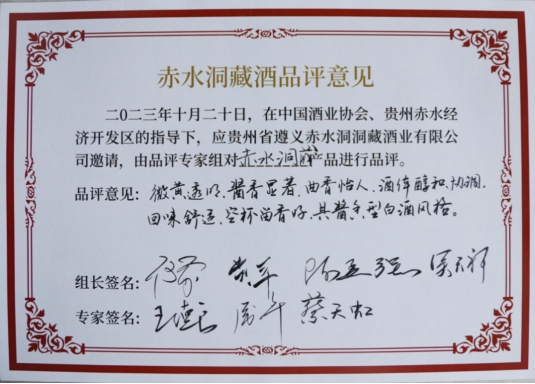 赤水洞藏酒品评意见
二〇二三年十月二十日，在中国酒业协会、贵州赤水经
济开发区的指导下，应贵州省遵义赤水洞洞藏酒业有限公
司邀请，由品评专家组对赤水洞藏产品进行品评。
品评意见：微黄透明、酱香显著、曲香怡人、酒体醇和、协调、
回味舒适、空杯留香好，具酱香型白酒风格。
组长签名：
专家签名：王德良 蔡天虹